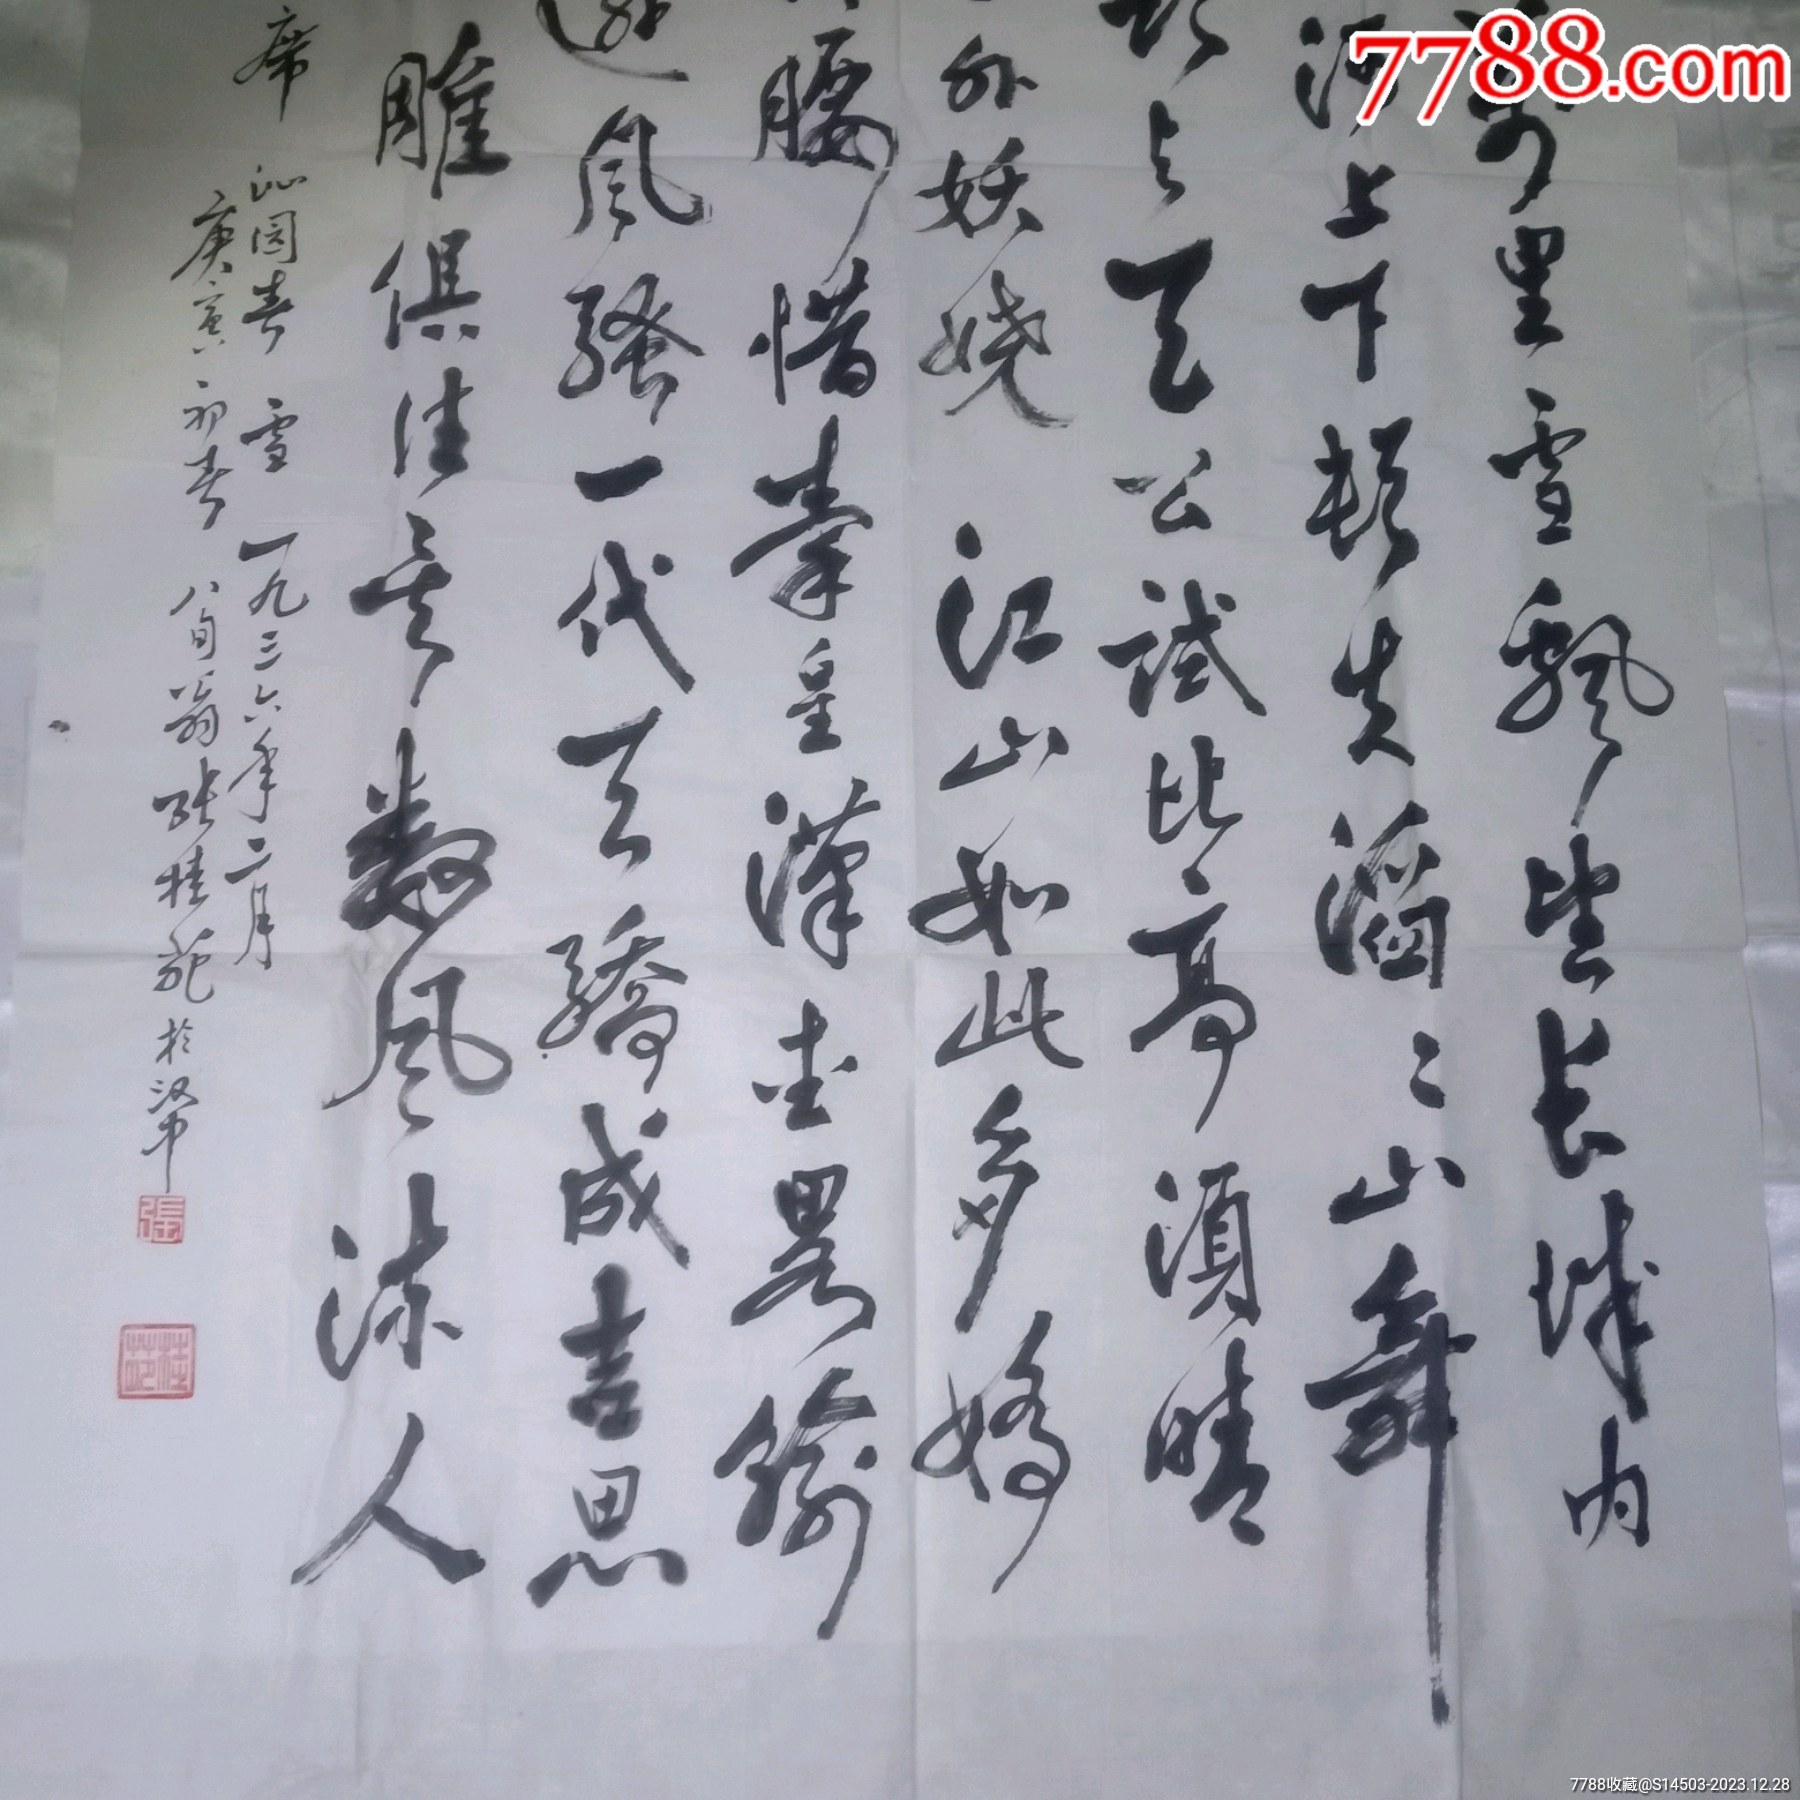 7788.com
萬里雪飘望长城内
河上下顿失滔〻山舞
欲与天公試比高須晴
外妖娆江山如此多娇
腰惜秦皇漢武畧输
逊风骚一代天骄成吉思
雕俱往矣数风流人
席 沁园春 雪 一九三六年二月
庚寅初春 八旬翁张桂苑於汉中
張
桂苑
7788收藏@S14503-2023.12.28